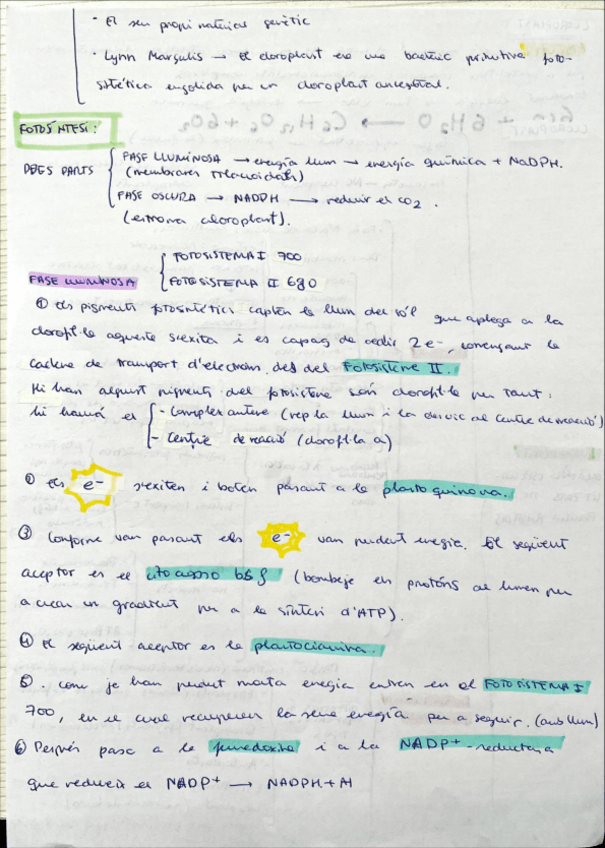 • El seu propi material genètic
• Lynn Margulis → El cloroplast era una bacteria primitiva foto-
sintètica engolida per un cloroplast ancestral.
FOTOSÍNTESI:
DUES PARTS
FASE LLUMINOSA → energía llum → energía química + NADPH.
(membranes tilacoidals)
FASE OSCURA → NADPH → reduir el CO2.
(estroma cloroplast).
FASE LLUMINOSA
FOTOSISTEMA I 700
FOTOSISTEMA II 680
① Els pigments fotosintètics capten la llum del sol que aplega a la
clorofil·la aquesta s'exita i es capaç de cedir 2e-, començant la
cadena de transport d'electrons des del Fotosistema II.
Hi han adjunt pigments del fotosistema són clorofil·la per tant:
hi haurà el
- Complex antena (rep la llum i la desvia al centre de reacció)
- Centre de reacció (clorofil·la a)
② Els e- s'exiten i boten pasant a la plastoquinona.
③ Conforme van pasant els e- van perdent energia. El següent
aceptor es el citocromo b6f (bombeja els protóns al lumen per
a crear un gradient per a la síntesi d'ATP).
④ El següent aceptor es la plastocianina.
⑤. Com ja han perdut molta energia entren en el FOTOSISTEMA I
700, en el cual recuperen la seua energía per a seguir. (amb llum)
⑥ Després pasa a la ferredoxina i a la NADP+-reductasa
que redueix el NADP+ → NADPH + H